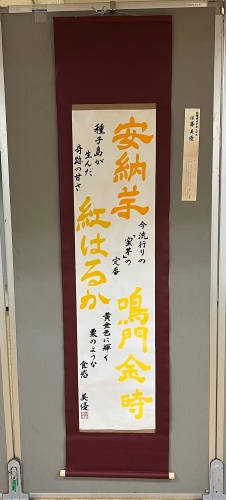 安納芋
種子島が
生んだ
奇跡の甘さ
今流行りの
「蜜芋」の
定番
紅はるか
鳴門金時
黄金色に輝く
栗のような
食感
美優